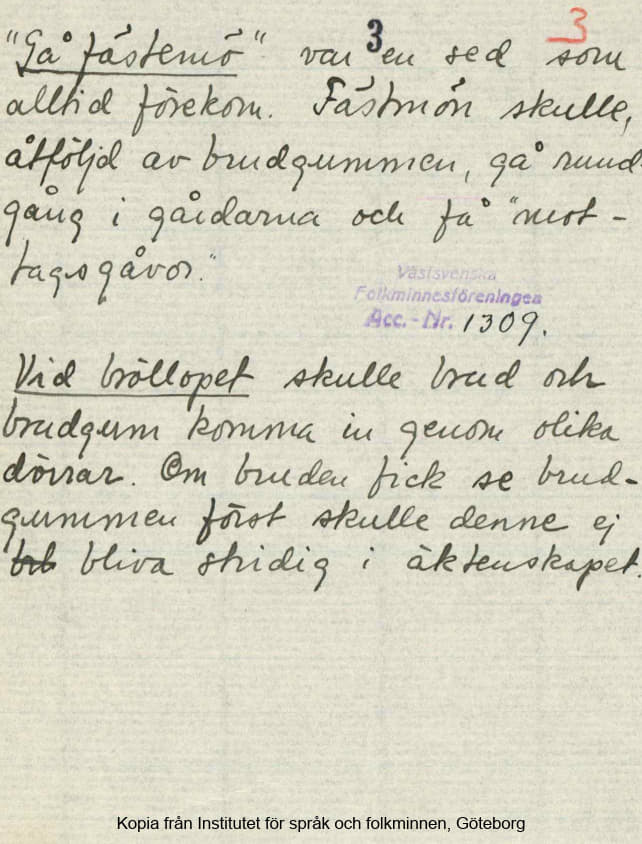 3
3
"Gå fästemö" var en sed som
alltid förekom. Fästmön skulle,
åtföljd av brudgummen, gå rund-
gång i gårdarna och få "mot-
tagsgåvor."
Västsvenska
Folkminnesföreningen
Acc.-Nr. 1309.
Vid bröllopet skulle brud och
brudgum komma in genom olika
dörrar. Om bruden fick se brud-
gummen först skulle denne ej
bliva stridig i äktenskapet.
Kopia från Institutet för språk och folkminnen, Göteborg